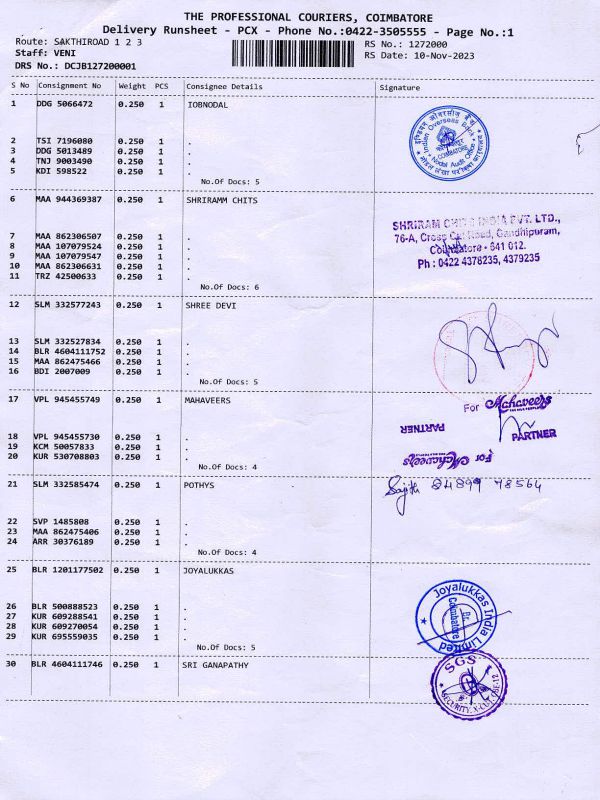 THE PROFESSIONAL COURIERS, COIMBATORE
Delivery Runsheet - PCX - Phone No.:0422-3505555 - Page No.:1
Route: SAKTHIROAD 1 2 3
RS No.: 1272000
Staff: VENI
RS Date: 10-Nov-2023
DRS No.: DCJB127200001
S No Consignment No Weight PCS Consignee Details Signature
1 DDG 5066472 0.250 1 IOBNODAL
इण्डियन ओवरसीज़ बैंक
Indian Overseas Bank
COIMBATORE
Nodal Audit Office
2 TSI 7196080 0.250 1 .
3 DDG 5013489 0.250 1 .
4 TNJ 9003490 0.250 1 .
5 KDI 598522 0.250 1 .
No.Of Docs: 5
6 MAA 944369387 0.250 1 SHRIRAMM CHITS
SHRIRAM CHITS INDIA PVT. LTD.,
76-A, Cross Cut Road, Gandhipuram,
Coimbatore - 641 012.
Ph : 0422 4378235, 4379235
7 MAA 862306507 0.250 1 .
8 MAA 107079524 0.250 1 .
9 MAA 107079547 0.250 1 .
10 MAA 862306631 0.250 1 .
11 TRZ 42500633 0.250 1 .
No.Of Docs: 6
12 SLM 332577243 0.250 1 SHREE DEVI
13 SLM 332527834 0.250 1 .
14 BLR 4604111752 0.250 1 .
15 MAA 862475466 0.250 1 .
16 BDI 2007009 0.250 1 .
No.Of Docs: 5
17 VPL 945455749 0.250 1 MAHAVEERS
For Mahaveers
PARTNER
PARTNER
For Mahaveers
18 VPL 945455730 0.250 1 .
19 KCM 50057833 0.250 1 .
20 KUR 530708803 0.250 1 .
No.Of Docs: 4
21 SLM 332585474 0.250 1 POTHYS
Sajith 84899 48564
22 SVP 1485808 0.250 1 .
23 MAA 862475406 0.250 1 .
24 ARR 30376189 0.250 1 .
No.Of Docs: 4
25 BLR 1201177502 0.250 1 JOYALUKKAS
Joyalukkas India Limited
Br.
Coimbatore
26 BLR 500888523 0.250 1 .
27 KUR 609288541 0.250 1 .
28 KUR 609270054 0.250 1 .
29 KUR 695559035 0.250 1 .
No.Of Docs: 5
30 BLR 4604111746 0.250 1 SRI GANAPATHY
SGS